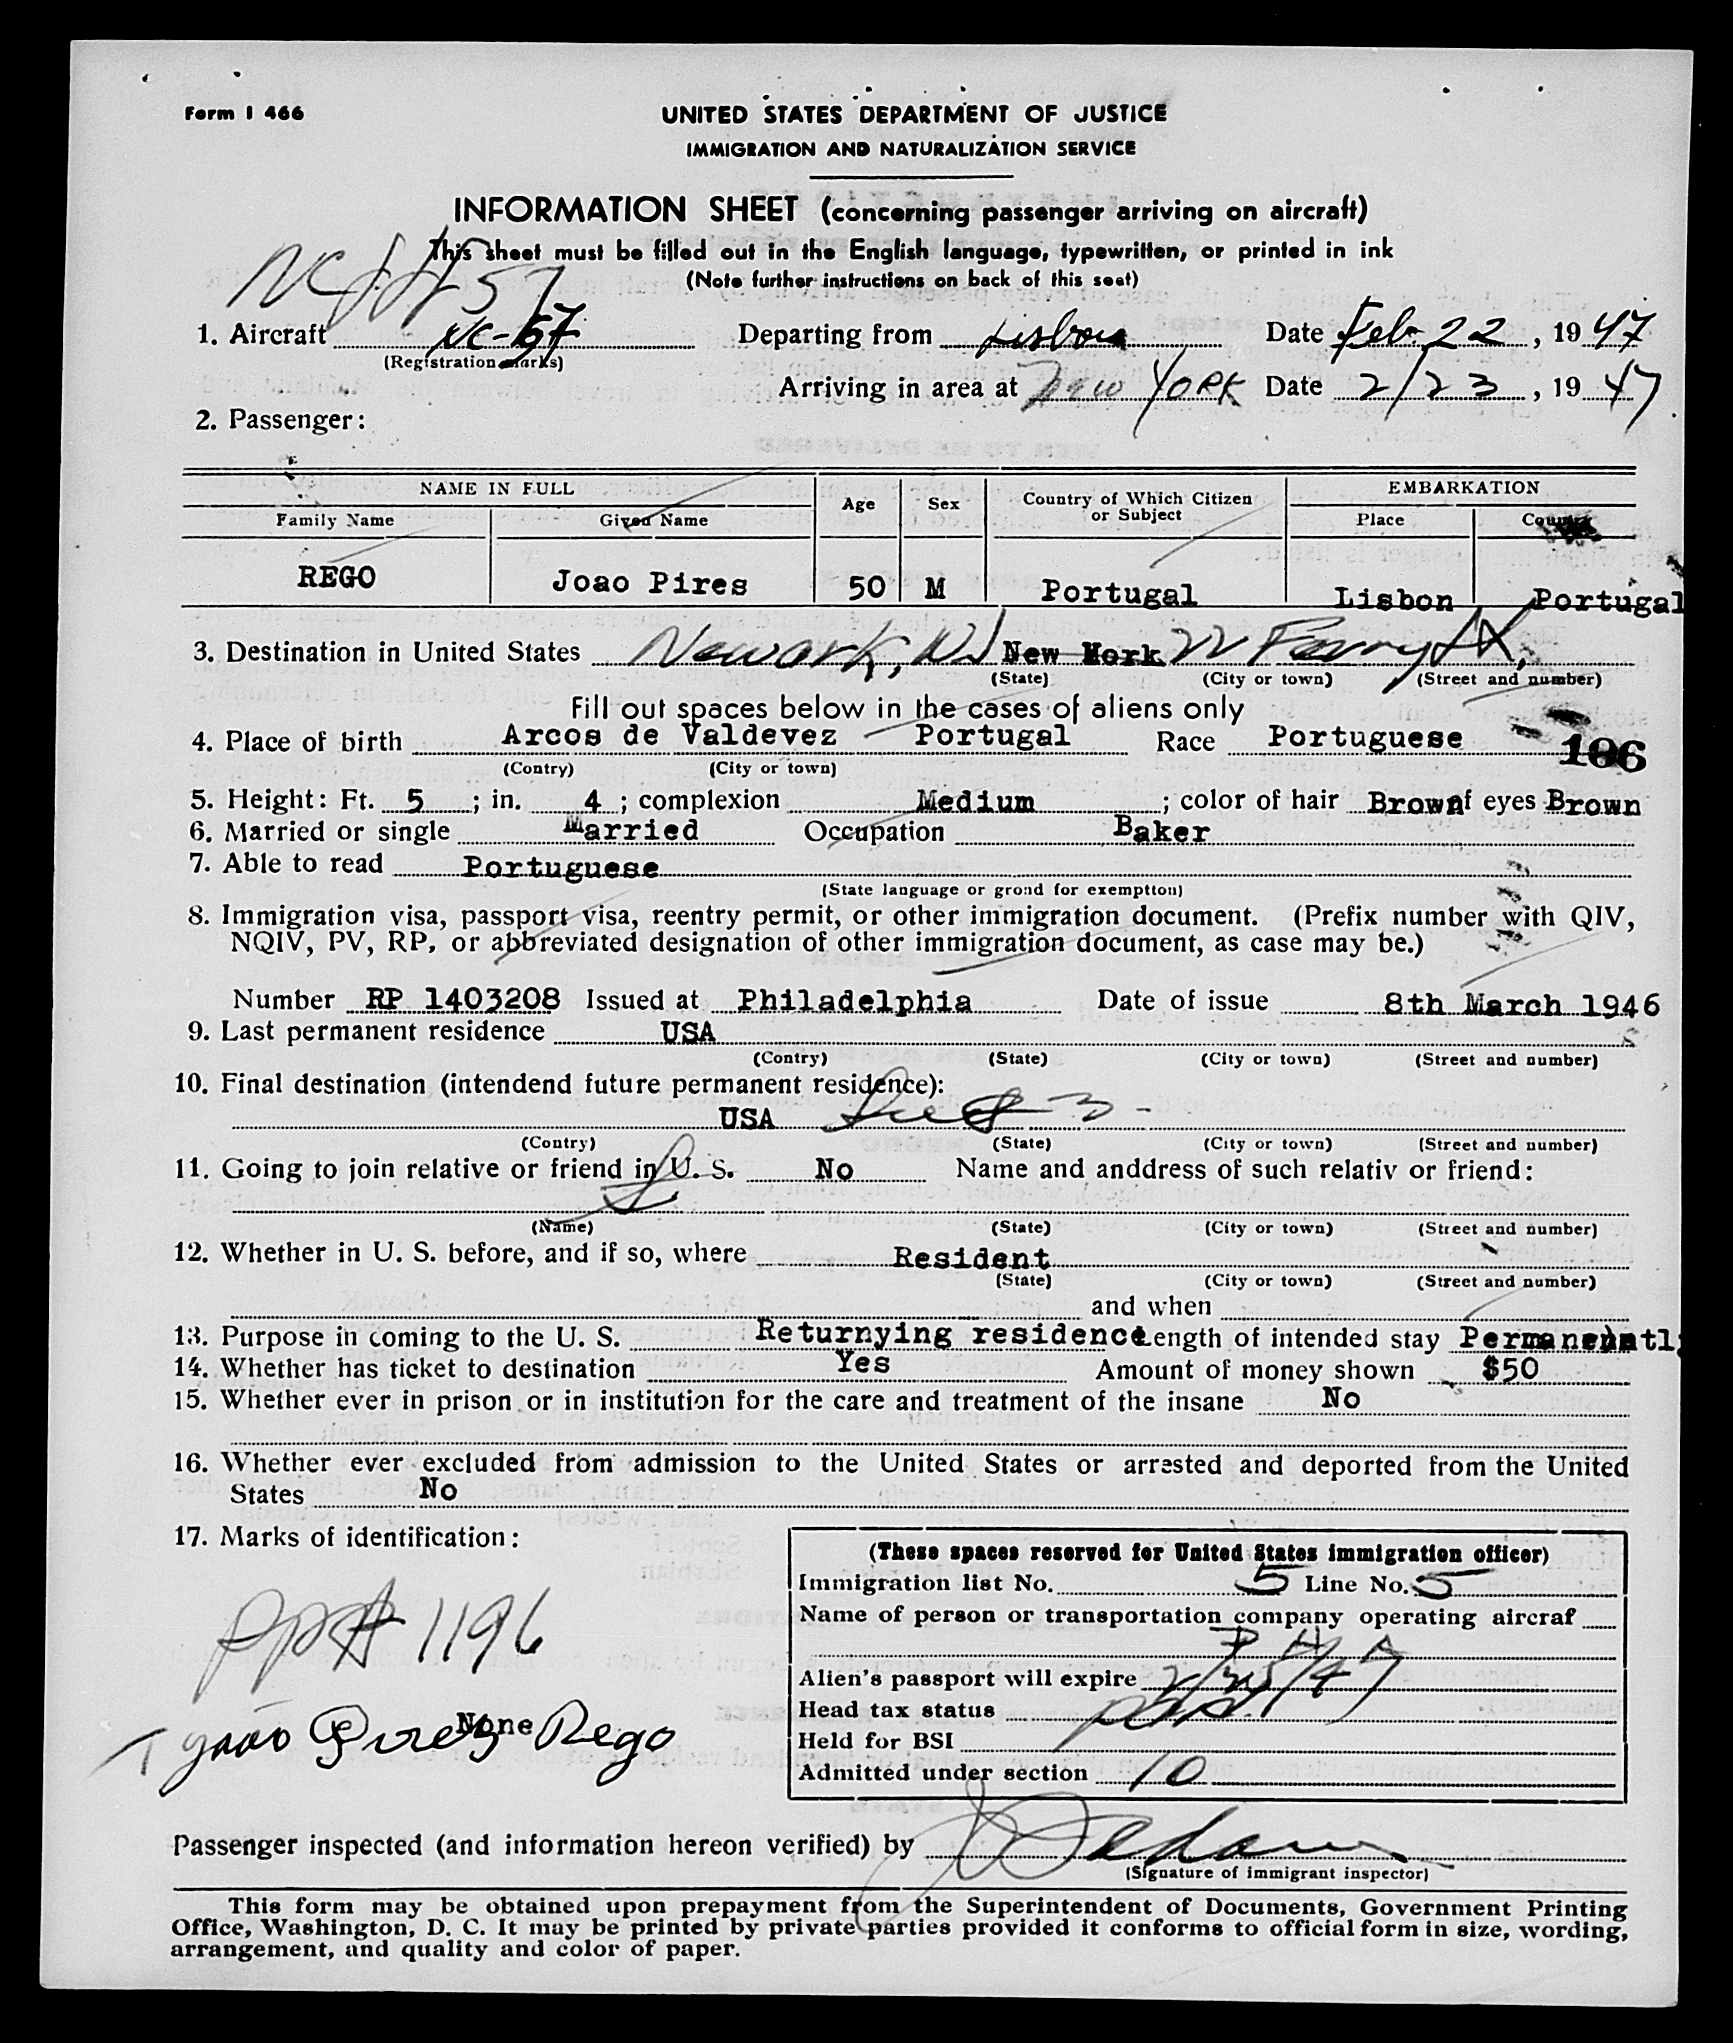 Form I 466
UNITED STATES DEPARTMENT OF JUSTICE
IMMIGRATION AND NATURALIZATION SERVICE
INFORMATION SHEET (concerning passenger arriving on aircraft)
This sheet must be filled out in the English language, typewritten, or printed in ink
(Note further instructions on back of this seet)
1. Aircraft NC-57 Departing from Lisbon Date Feb 22, 19 47
(Registration marks)
Arriving in area at New York Date 2/23, 19 47
2. Passenger:
NAME IN FULL Age Sex Country of Which Citizen or Subject EMBARKATION
Family Name Given Name Place Country
REGO Joao Pires 50 M Portugal Lisbon Portugal
3. Destination in United States Newark, NJ New York 22 Ferry St,
(State) (City or town) (Street and number)
Fill out spaces below in the cases of aliens only
4. Place of birth Arcos de Valdevez Portugal Race Portuguese
106
(Contry) (City or town)
5. Height: Ft. 5; in. 4; complexion Medium; color of hair Brown of eyes Brown
6. Married or single Married Occupation Baker
7. Able to read Portuguese
(State language or grond for exemption)
8. Immigration visa, passport visa, reentry permit, or other immigration document. (Prefix number with QIV,
NQIV, PV, RP, or abbreviated designation of other immigration document, as case may be.)
Number RP 1403208 Issued at Philadelphia Date of issue 8th March 1946
9. Last permanent residence USA
(Contry) (State) (City or town) (Street and number)
10. Final destination (intendend future permanent residence):
USA
(Contry) (State) (City or town) (Street and number)
11. Going to join relative or friend in U. S. No Name and anddress of such relativ or friend:
(Name) (State) (City or town) (Street and number)
12. Whether in U. S. before, and if so, where Resident
(State) (City or town) (Street and number)
and when
13. Purpose in coming to the U. S. Returnying residence Length of intended stay Permanently
14. Whether has ticket to destination Yes Amount of money shown $50
15. Whether ever in prison or in institution for the care and treatment of the insane No
16. Whether ever excluded from admission to the United States or arrested and deported from the United
States No
17. Marks of identification:
(These spaces reserved for United States immigration officer)
Immigration list No. 5 Line No. 5
Name of person or transportation company operating aircraf
Alien's passport will expire
Head tax status
Held for BSI
Admitted under section 10
PP# 1196
None
João Pires Rego
Passenger inspected (and information hereon verified) by
(Signature of immigrant inspector)
This form may be obtained upon prepayment from the Superintendent of Documents, Government Printing
Office, Washington, D. C. It may be printed by private parties provided it conforms to official form in size, wording,
arrangement, and quality and color of paper.